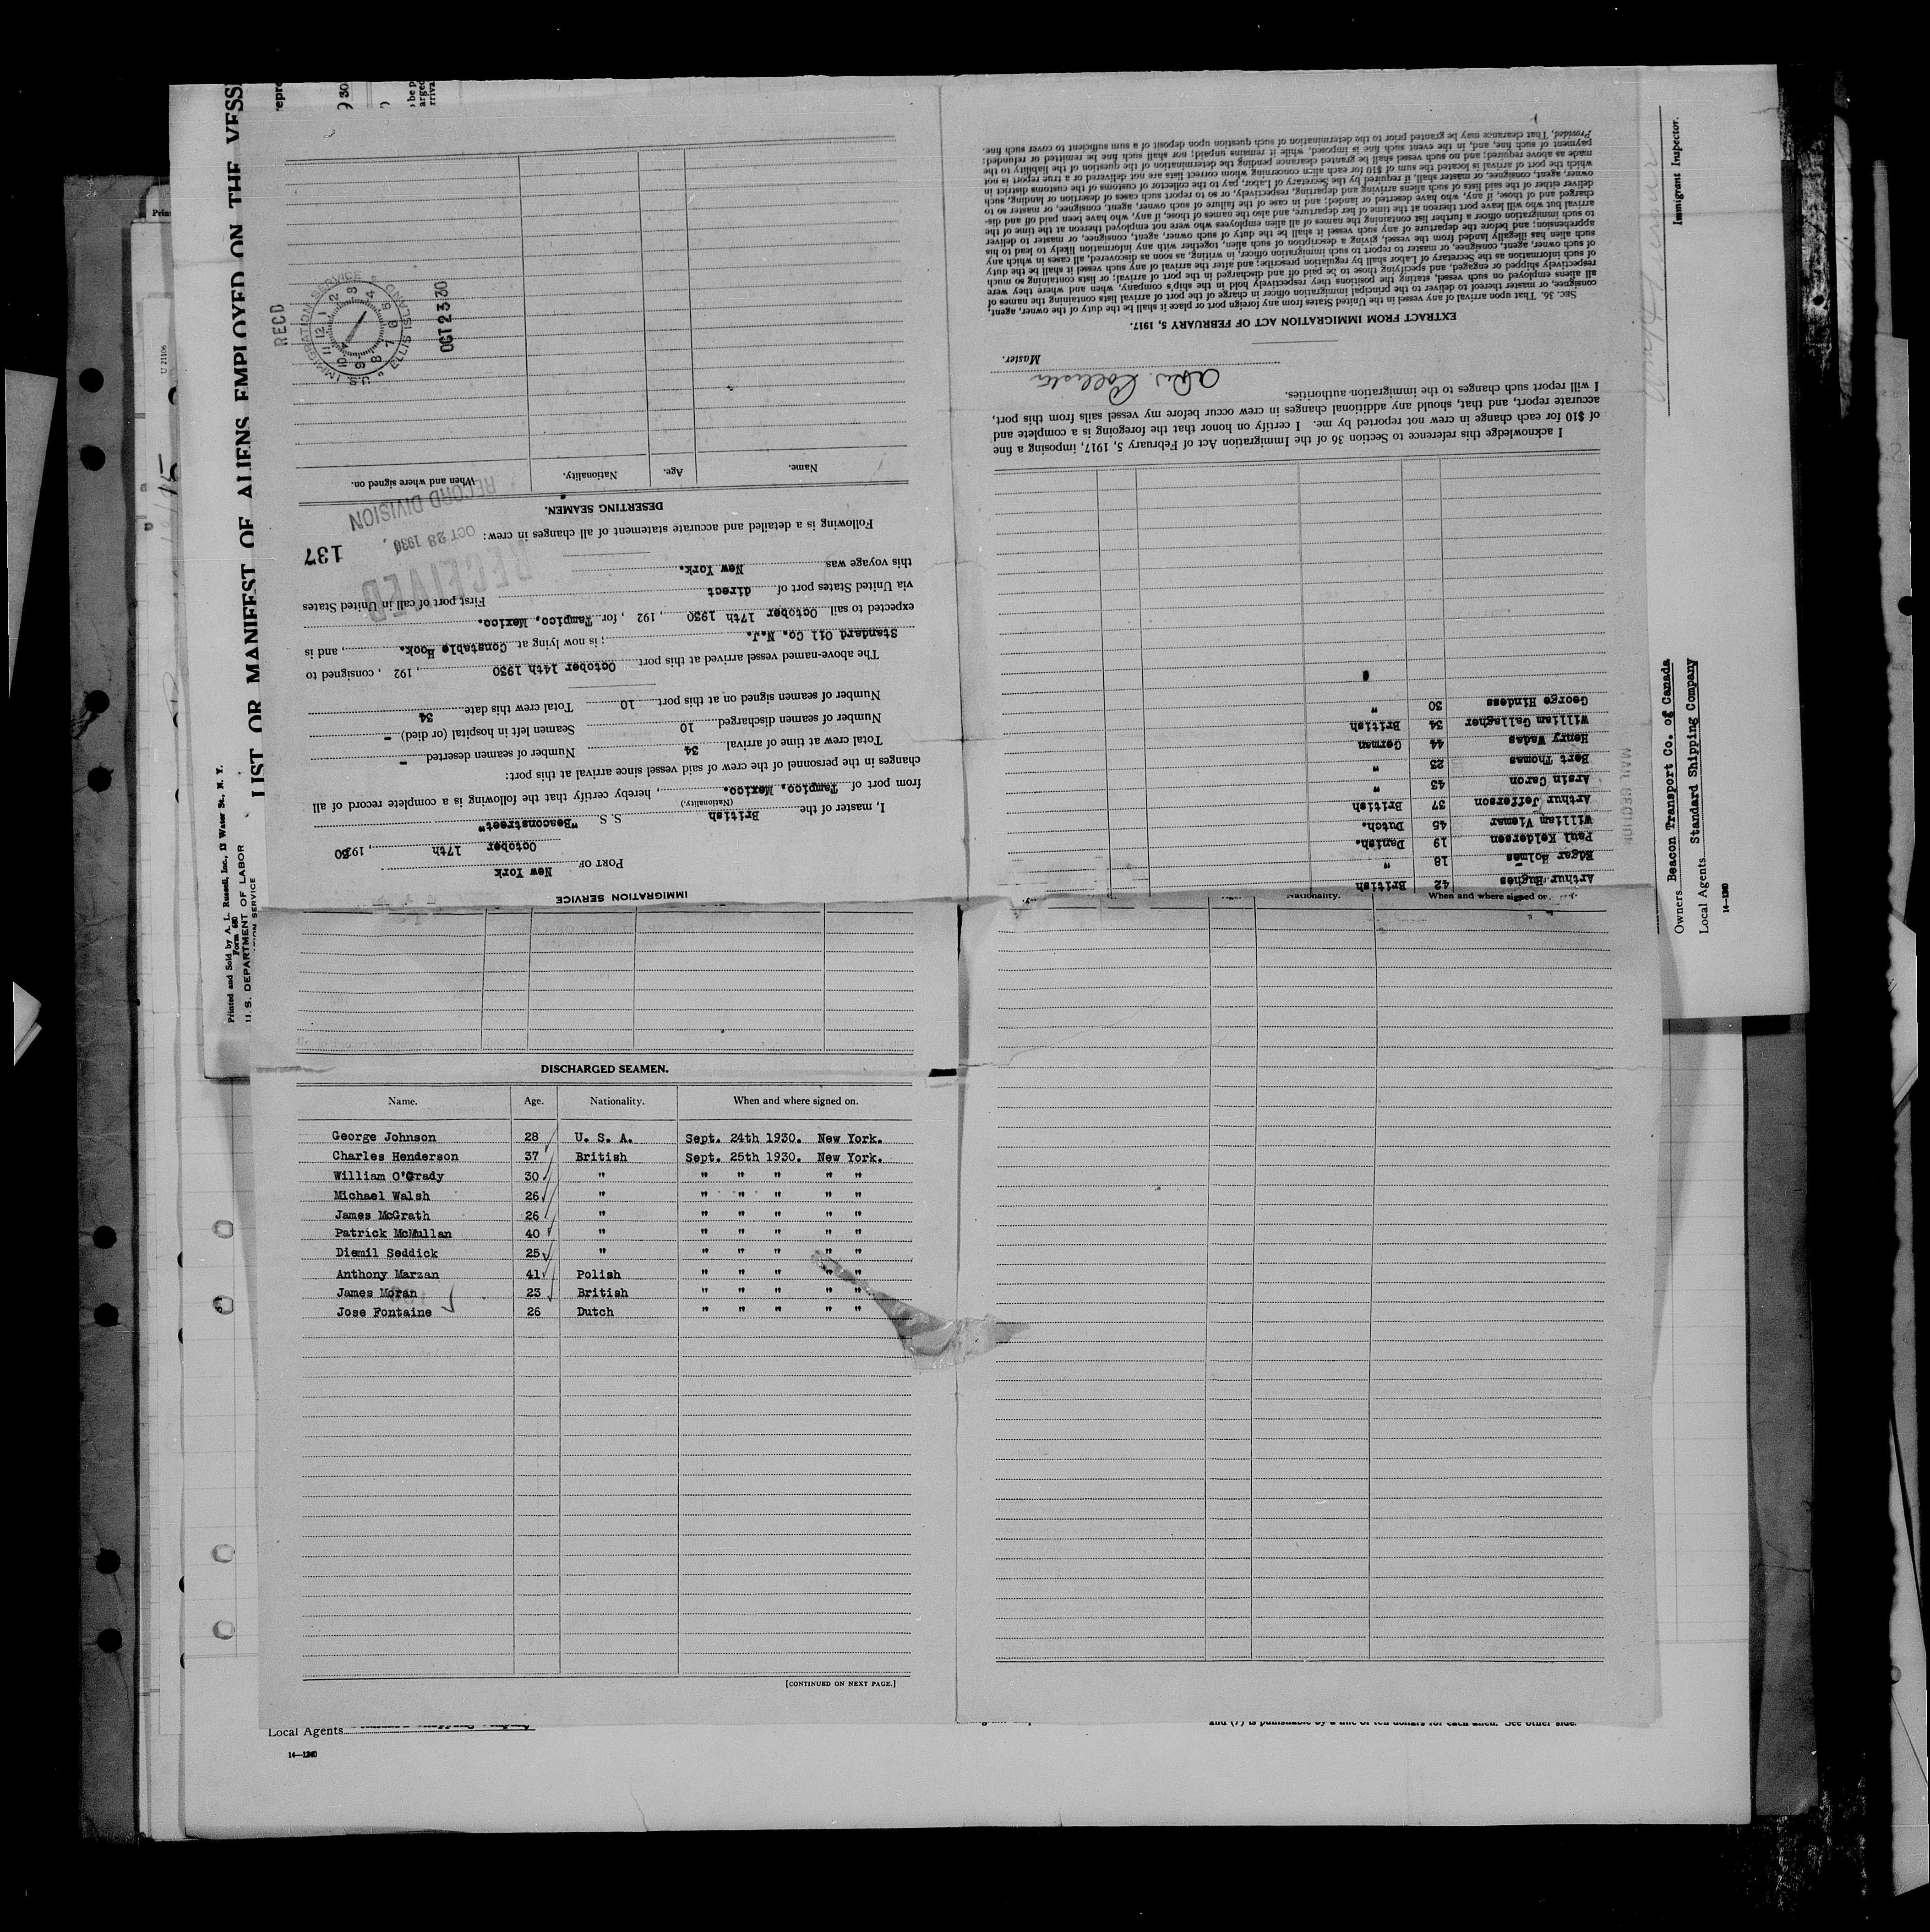 LIST OR MANIFEST OF ALIENS EMPLOYED ON THE
Printed and Sold by A. L. Russell, Inc., 13 Water St., N. Y.
Form 680
U. S. DEPARTMENT OF LABOR
U 21106
IMMIGRATION SERVICE
PORT OF New York
October 17th, 1930
I, master of the British S. S. "Beaconstreet"
(Nationality.)
from port of Tampico, Mexico., hereby certify that the following is a complete record of all
changes in the personnel of the crew of said vessel since arrival at this port:
Total crew at time of arrival 34 Number of seamen deserted -
Number of seamen discharged 10 Seamen left in hospital (or died) -
Number of seamen signed on at this port 10 Total crew this date 34
The above-named vessel arrived at this port October 14th 1930, 192 , consigned to
Standard Oil Co. N.J. ; is now lying at Constable Hook. , and is
expected to sail October 17th 1930 , 192 , for Tampico, Mexico.
via United States port of direct First port of call in United States
this voyage was New York.
137
RECEIVED
OCT 28 1930
RECORD DIVISION
Following is a detailed and accurate statement of all changes in crew:
DESERTING SEAMEN.
Name. Age. Nationality. When and where signed on.
RECD
U.S. IMMIGRATION SERVICE
ELLIS ISLAND
1 2 3 4 5 6 7 8 9 10 11 12
OCT 23 30
DISCHARGED SEAMEN.
Name. Age. Nationality. When and where signed on.
George Johnson 28 U. S. A. Sept. 24th 1930. New York.
Charles Henderson 37 British Sept. 25th 1930. New York.
William O'Grady 30 " " " " " "
Michael Walsh 26 " " " " " "
James McGrath 26 " " " " " "
Patrick McMullan 40 " " " " " "
Diemil Seddick 25 " " " " " "
Anthony Marzan 41 Polish " " " " "
James Moran 23 British " " " " "
Jose Fontaine 26 Dutch " " " " "
[CONTINUED ON NEXT PAGE.]
Nationality. When and where signed
Arthur Hughes 42 British
Edgar Holmes 18 "
Paul Keldersen 19 Danish.
William Viemar 45 Dutch.
Arthur Jefferson 37 British
Arsin Caron 43 "
Bert Thomas 23 "
Henry Wades 44 German
William Gallagher 34 British
George Hindess 30 "
I acknowledge this reference to Section 36 of the Immigration Act of February 5, 1917, imposing a fine
of $10 for each change in crew not reported by me. I certify on honor that the foregoing is a complete and
accurate report, and that, should any additional changes in crew occur before my vessel sails from this port,
I will report such changes to the immigration authorities.
Master.
EXTRACT FROM IMMIGRATION ACT OF FEBRUARY 5, 1917.
SEC. 36. That upon arrival of any vessel in the United States from any foreign port or place it shall be the duty of the owner, agent,
consignee, or master thereof to deliver to the principal immigration officer in charge of the port of arrival lists containing the names of
all aliens employed on such vessel, stating the positions they respectively hold in the ship's company, when and where they were
respectively shipped or engaged, and specifying those to be paid off and discharged in the port of arrival; or lists containing so much
of such information as the Secretary of Labor shall by regulation prescribe; and after the arrival of any such vessel it shall be the duty
of such owner, agent, consignee, or master to report to such immigration officer, in writing, as soon as discovered, all cases in which any
such alien has illegally landed from the vessel, giving a description of such alien, together with any information likely to lead to his
apprehension; and before the departure of any such vessel it shall be the duty of such owner, agent, consignee, or master to deliver
to such immigration officer a further list containing the names of all alien employees who were not employed thereon at the time of the
arrival but who will leave port thereon at the time of her departure, and also the names of those, if any, who have been paid off and dis-
charged and of those, if any, who have deserted or landed; and in case of the failure of such owner, agent, consignee, or master so to
deliver either of the said lists of such aliens arriving and departing, respectively, or so to report such cases of desertion or landing, such
owner, agent, consignee, or master, shall, if required by the Secretary of Labor, pay to the collector of customs of the customs district in
which the port of arrival is located the sum of $10 for each alien concerning whom correct lists are not delivered or a true report is not
made as above required; and no such vessel shall be granted clearance pending the determination of the question of the liability to the
payment of such fine, and, in the event such fine is imposed, while it remains unpaid; nor shall such fine be remitted or refunded:
Provided, That clearance may be granted prior to the determination of such question upon deposit of a sum sufficient to cover such fine.
Immigrant Inspector.
Owners Beacon Transport Co. of Canada
Local Agents Standard Shipping Company
14-1240
MAIL SECTION
Local Agents
14-1240
and (7) is punishable by a fine of ten dollars for each alien. See other side.